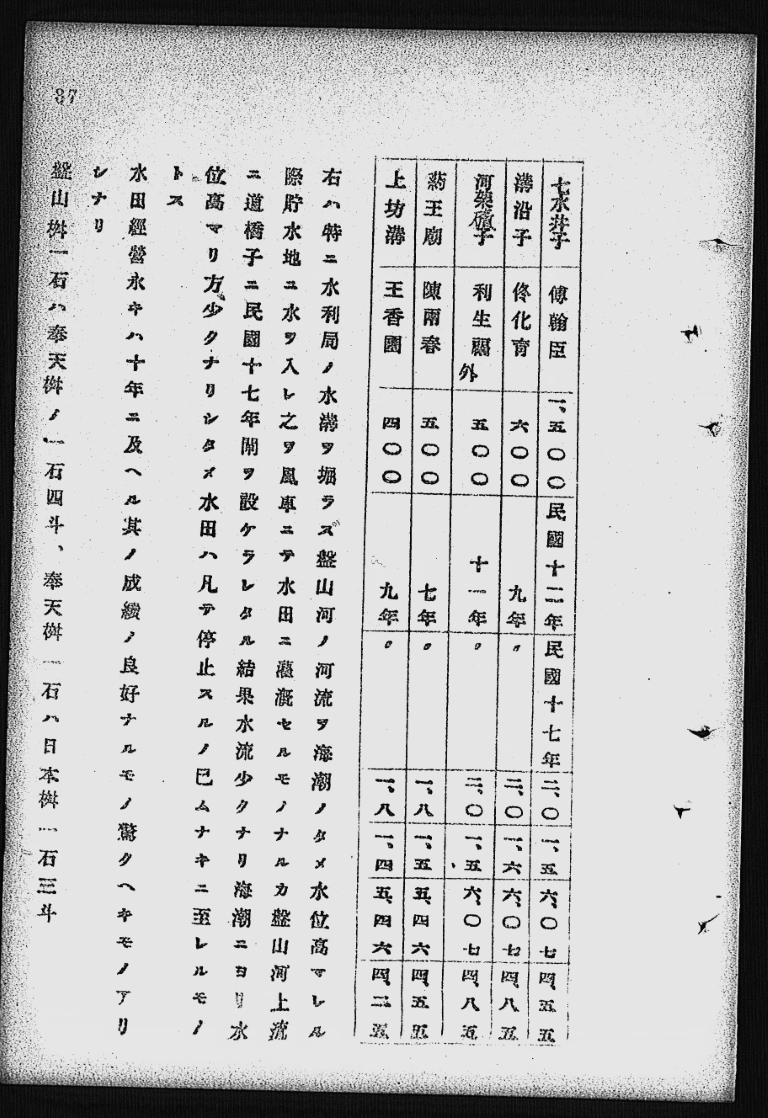 87
七水井子 傅翰臣 一、五〇〇 民國十二年 民國十七年 二、〇 一、五 六、〇七 四、五五
溝沿子 佟化育 六〇〇 九年 〃 二、〇 一、六 六、〇七 四、八五
河 子 利生 外 五〇〇 十一年 〃 二、〇 一、五 六、〇七 四、八五
藥王廟 陳雨春 五〇〇 七年 〃 一、八 一、五 五、四六 四、五五
上坊溝 王香圃 四〇〇 九年 〃 一、八 一、四 五、四六 四、二五
右ハ特ニ水利局ノ水溝ヲ堀ラズ盤山河ノ河流ヲ海潮ノタメ水位高マレル
際貯水地ニ水ヲ入レ之ヲ風車ニテ水田ニ灌漑セルモノナルカ盤山河上流
ニ道橋子ニ民國十七年閘ヲ設ケラレタル結果水流少クナリ海潮ニヨリ水
位高マリ方少クナリシタメ水田ハ凡テ停止スルノ已ムナキニ至レルモノ
トス
水田經營永キハ十年ニ及ヘル其ノ成績ノ良好ナルモノ驚クヘキモノアリ
シナリ
盤山桝一石ハ奉天桝ノ一石四斗、奉天桝一石ハ日本桝一石三斗